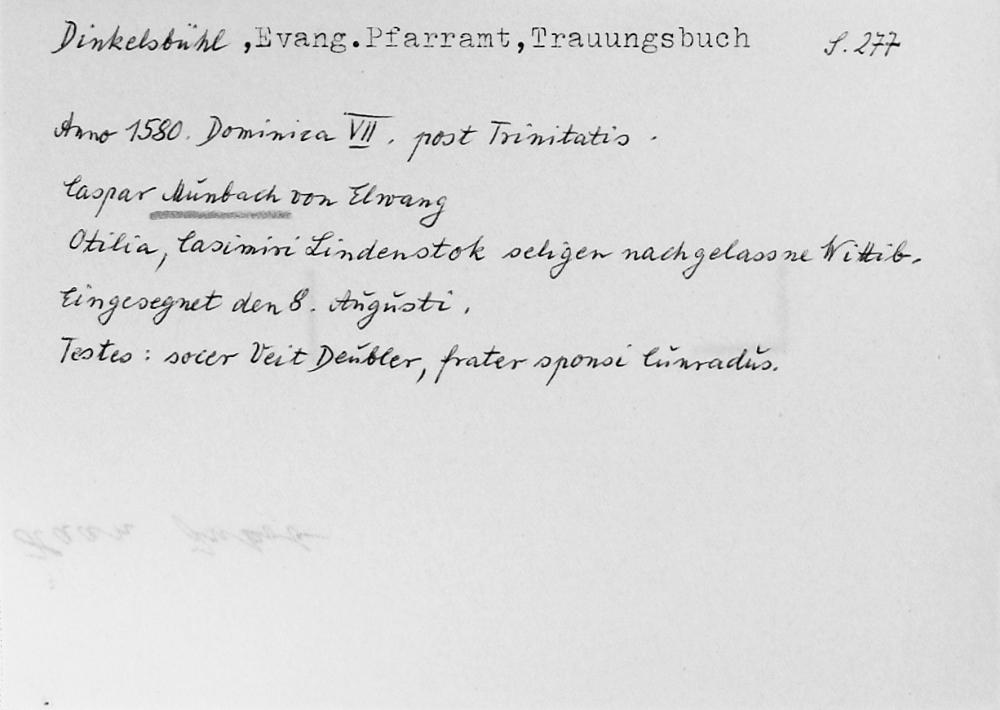 Dinkelsbühl, Evang. Pfarramt, Trauungsbuch S. 277
Anno 1580. Dominica VII. post Trinitatis.
Caspar Mŭnbach von Elwang
Otilia, Casimiri Lindenstok seligen nachgelassne Wittib.
Eingesegnet den 8. Aŭgŭsti.
Testes: socer Veit Deŭbler, frater sponsi Cŭnradŭs.